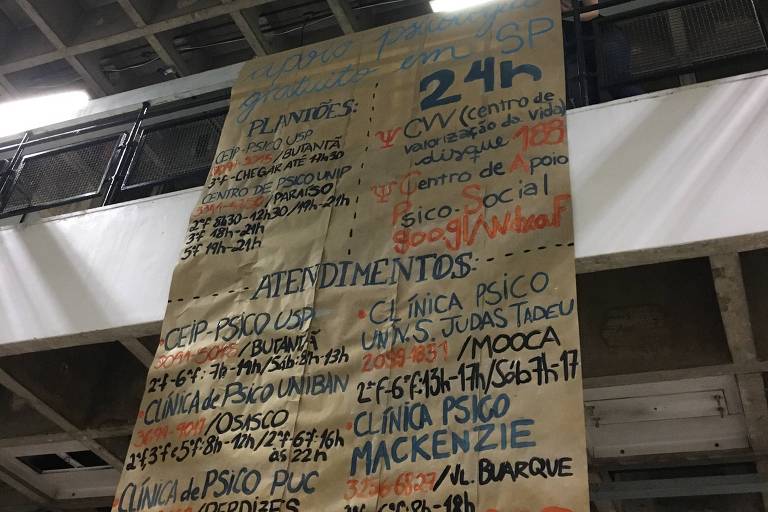 apoio psicológico
gratuito em SP
24h
PLANTÕES:
CEIP-PSICO USP
/BUTANTÃ
3ªf-CHEGAR ATÉ 17h30
CENTRO DE PSICO UNIP
/PARAÍSO
2ªf 8h30-12h30/19h-21h
3ªf 18h-21h
5ªf 19h-21h
Ψ CVV (centro de
valorização da vida)
disque 188
Ψ Centro de Apoio
Psico Social
ATENDIMENTOS:
• CEIP-PSICO USP
3091-5015/BUTANTÃ
2ªf-6ªf: 7h-19h/Sáb: 8h-13h
• CLÍNICA de PSICO UNIBAN
/OSASCO
2ªf, 3ªf e 5ªf: 8h-12h/2ªf-6ªf: 16h
às 22h
• CLÍNICA de PSICO PUC
/PERDIZES
• CLÍNICA PSICO
UNIV. S. JUDAS TADEU
2099-1831/MOOCA
2ªf-6ªf: 13h-17h/Sáb 7h-17
• CLÍNICA PSICO
MACKENZIE
3256-6827/VL. BUARQUE
2ªf-6ªf: 8h-18h